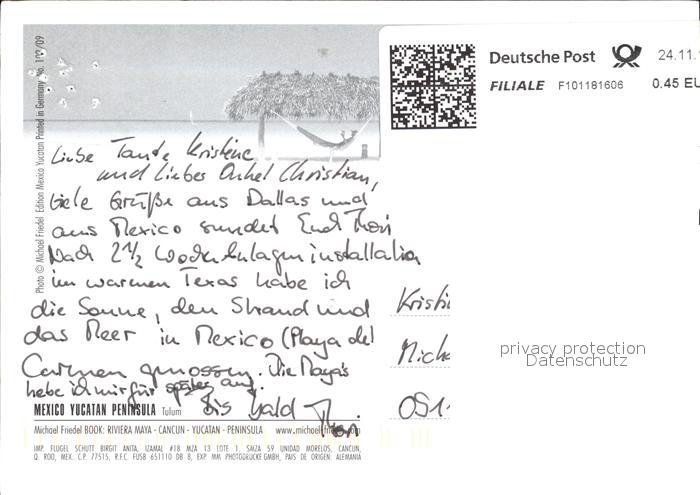 Deutsche Post
24.11.
FILIALE F101181606 0.45 EU
Liebe Tante Kristine
und liebes Onkel Christian,
Viele Grüße aus Dallas und
aus Mexico sendet Euch
Nach 2½ Wochen Anlageninstallation
im warmen Texas habe ich
die Sonne, den Strand und
das Meer in Mexico (Playa del
Carmen genossen. Die Maya's
hebe ich mir für später auf.
Bis bald
MEXICO YUCATAN PENINSULA Tulum
Michael Friedel BOOK: RIVIERA MAYA - CANCUN - YUCATAN - PENINSULA www.michael
IMP. FLUGEL SCHUTT BIRGIT ANITA, IZAMAL #18 MZA 13 LOTE 1, SMZA 59 UNIDAD MORELOS, CANCUN,
Q. ROO, MEX. C.P. 77515, R.F.C. FUSB 651110 DB 8, EXP. MM PHOTODRUCKE GMBH, PAIS DE ORIGEN: ALEMANIA
Photo © Michael Friedel Edition Mexico Yucatan Printed in Germany No.
Kristi
Mich
OS1
privacy protection
Datenschutz